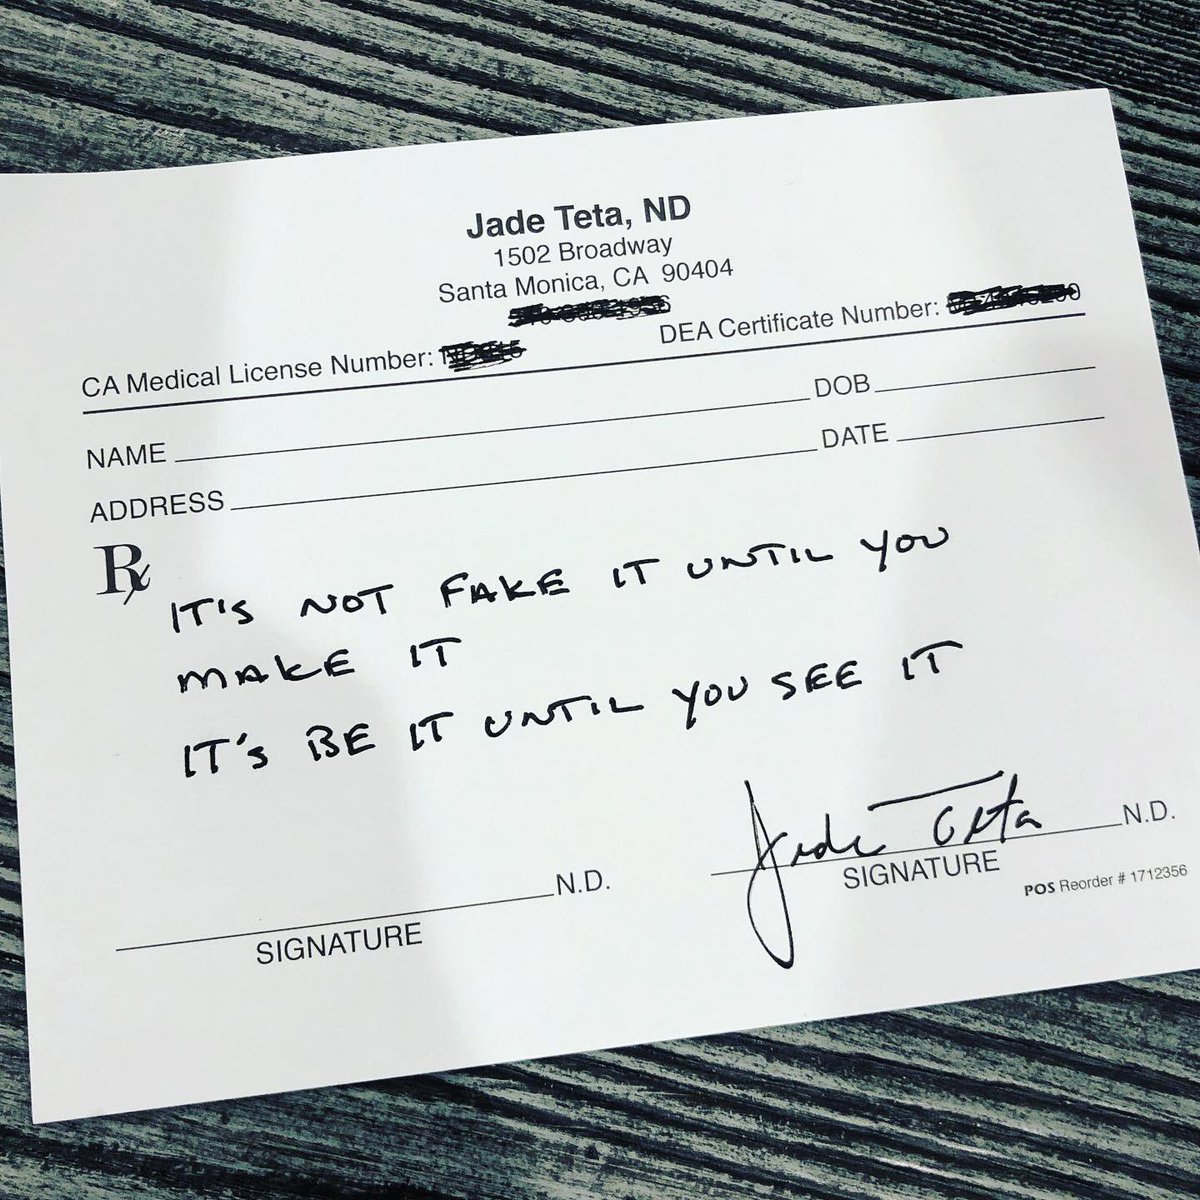 Jade Teta, ND
1502 Broadway
Santa Monica, CA 90404
CA Medical License Number: DEA Certificate Number:
NAME DOB
ADDRESS DATE
Rx
IT'S NOT FAKE IT UNTIL YOU
MAKE IT
IT'S BE IT UNTIL YOU SEE IT
Jade Teta
N.D. N.D.
SIGNATURE SIGNATURE
POS Reorder # 1712356